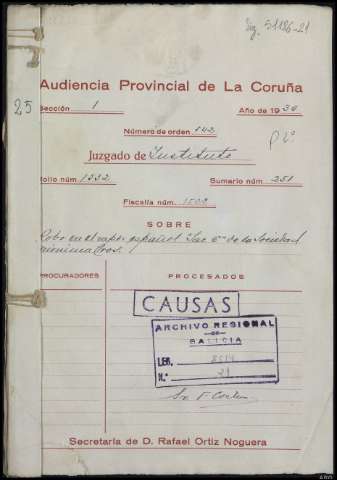 Sig. 51186-21
Audiencia Provincial de La Coruña
25
Sección 1
Año de 1930
Número de orden 142
Pª
Juzgado de Instituto
Rollo núm. 1332
Sumario núm. 251
Fiscalía núm. 1502
SOBRE
Robo en el vapor español de la Sociedad
PROCURADORES
PROCESADOS
CAUSAS
ARCHIVO REGIONAL
DE
GALICIA
LEG.
N.º 21
Secretaría de D. Rafael Ortiz Noguera